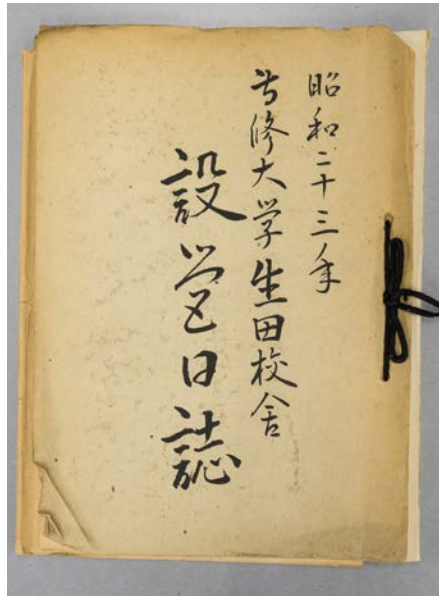 昭和二十三年
専修大学生田校舎
設営日誌